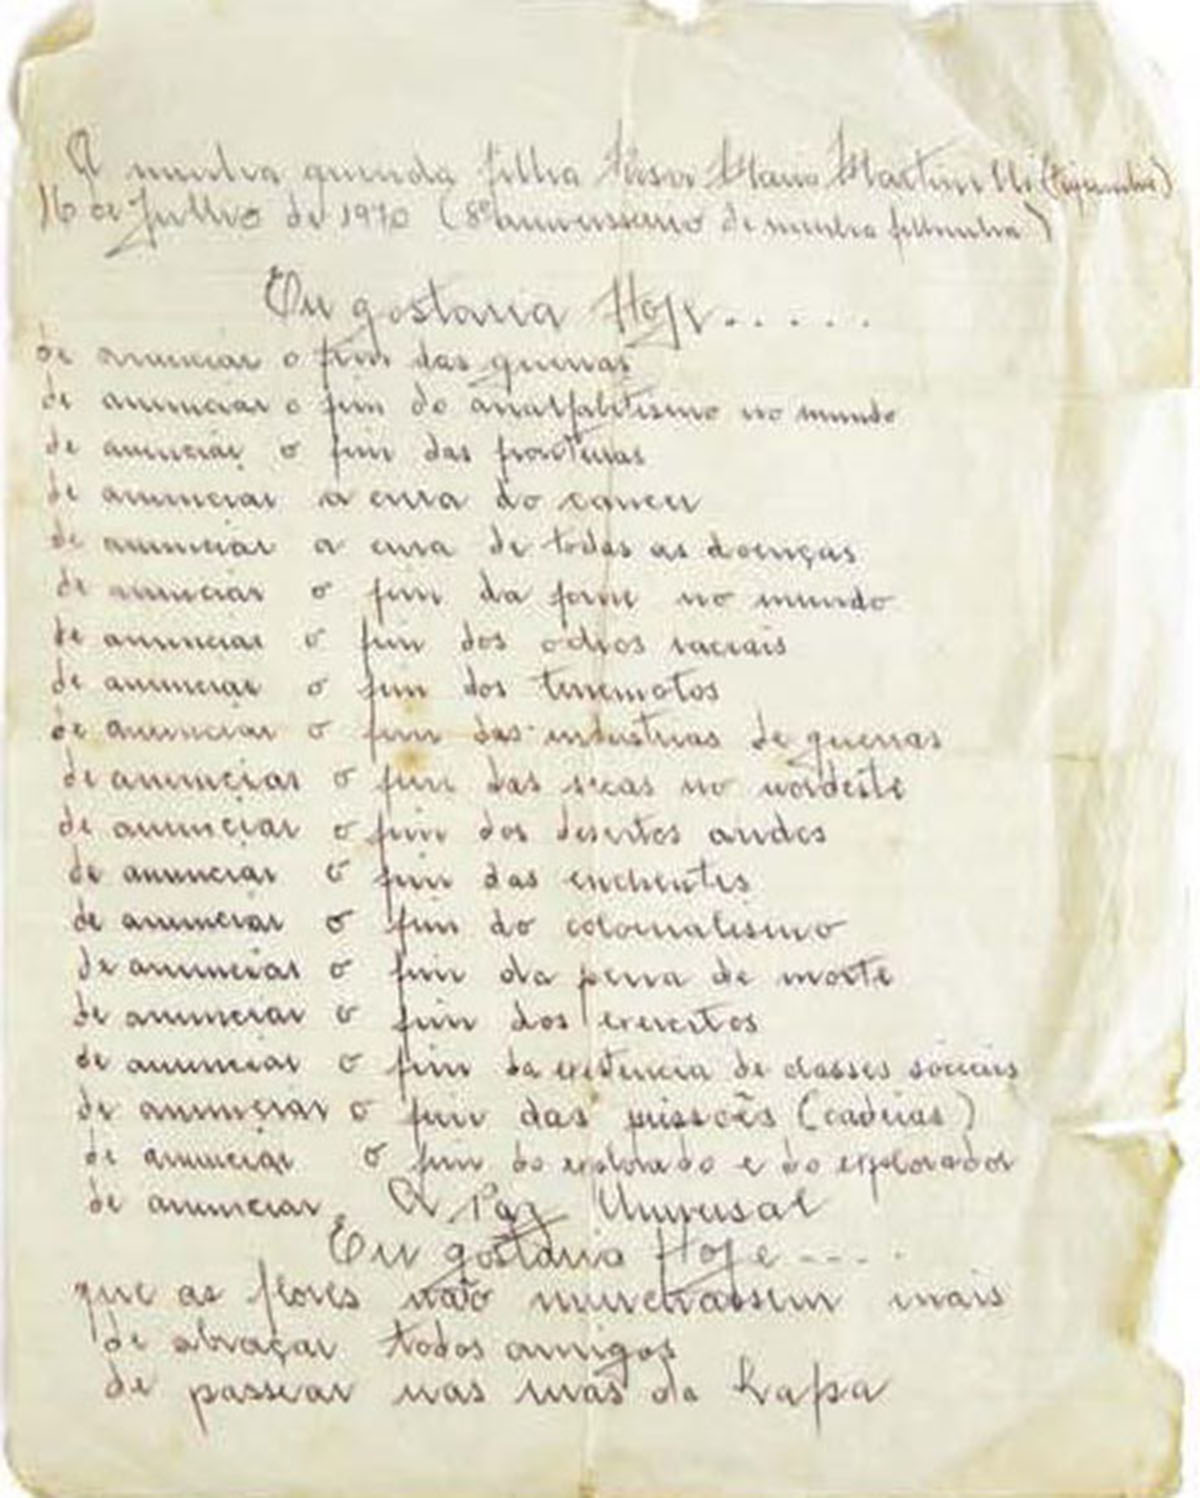 A minha querida filha Rosa Maria Martinelli
16 de Julho de 1970 (8º aniversario de minha filhinha)
Eu gostaria Hoje.....
de anunciar o fim das guerras
de anunciar o fim do analfabetismo no mundo
de anunciar o fim das fronteiras
de anunciar a cura do cancer
de anunciar a cura de todas as doenças
de anunciar o fim da fome no mundo
de anunciar o fim dos odios raciais
de anunciar o fim dos terremotos
de anunciar o fim das industrias de guerras
de anunciar o fim das secas no nordeste
de anunciar o fim dos desertos aridos
de anunciar o fim das enchentes
de anunciar o fim do colonialismo
de anunciar o fim da pena de morte
de anunciar o fim dos exercitos
de anunciar o fim da existencia de classes sociais
de anunciar o fim das prissões (cadeias)
de anunciar o fim do explorado e do explorador
de anunciar A Paz Universal
Eu gostaria Hoje ----.
que as flores não murchassem mais
de abraçar todos amigos
de passear nas ruas da Lapa